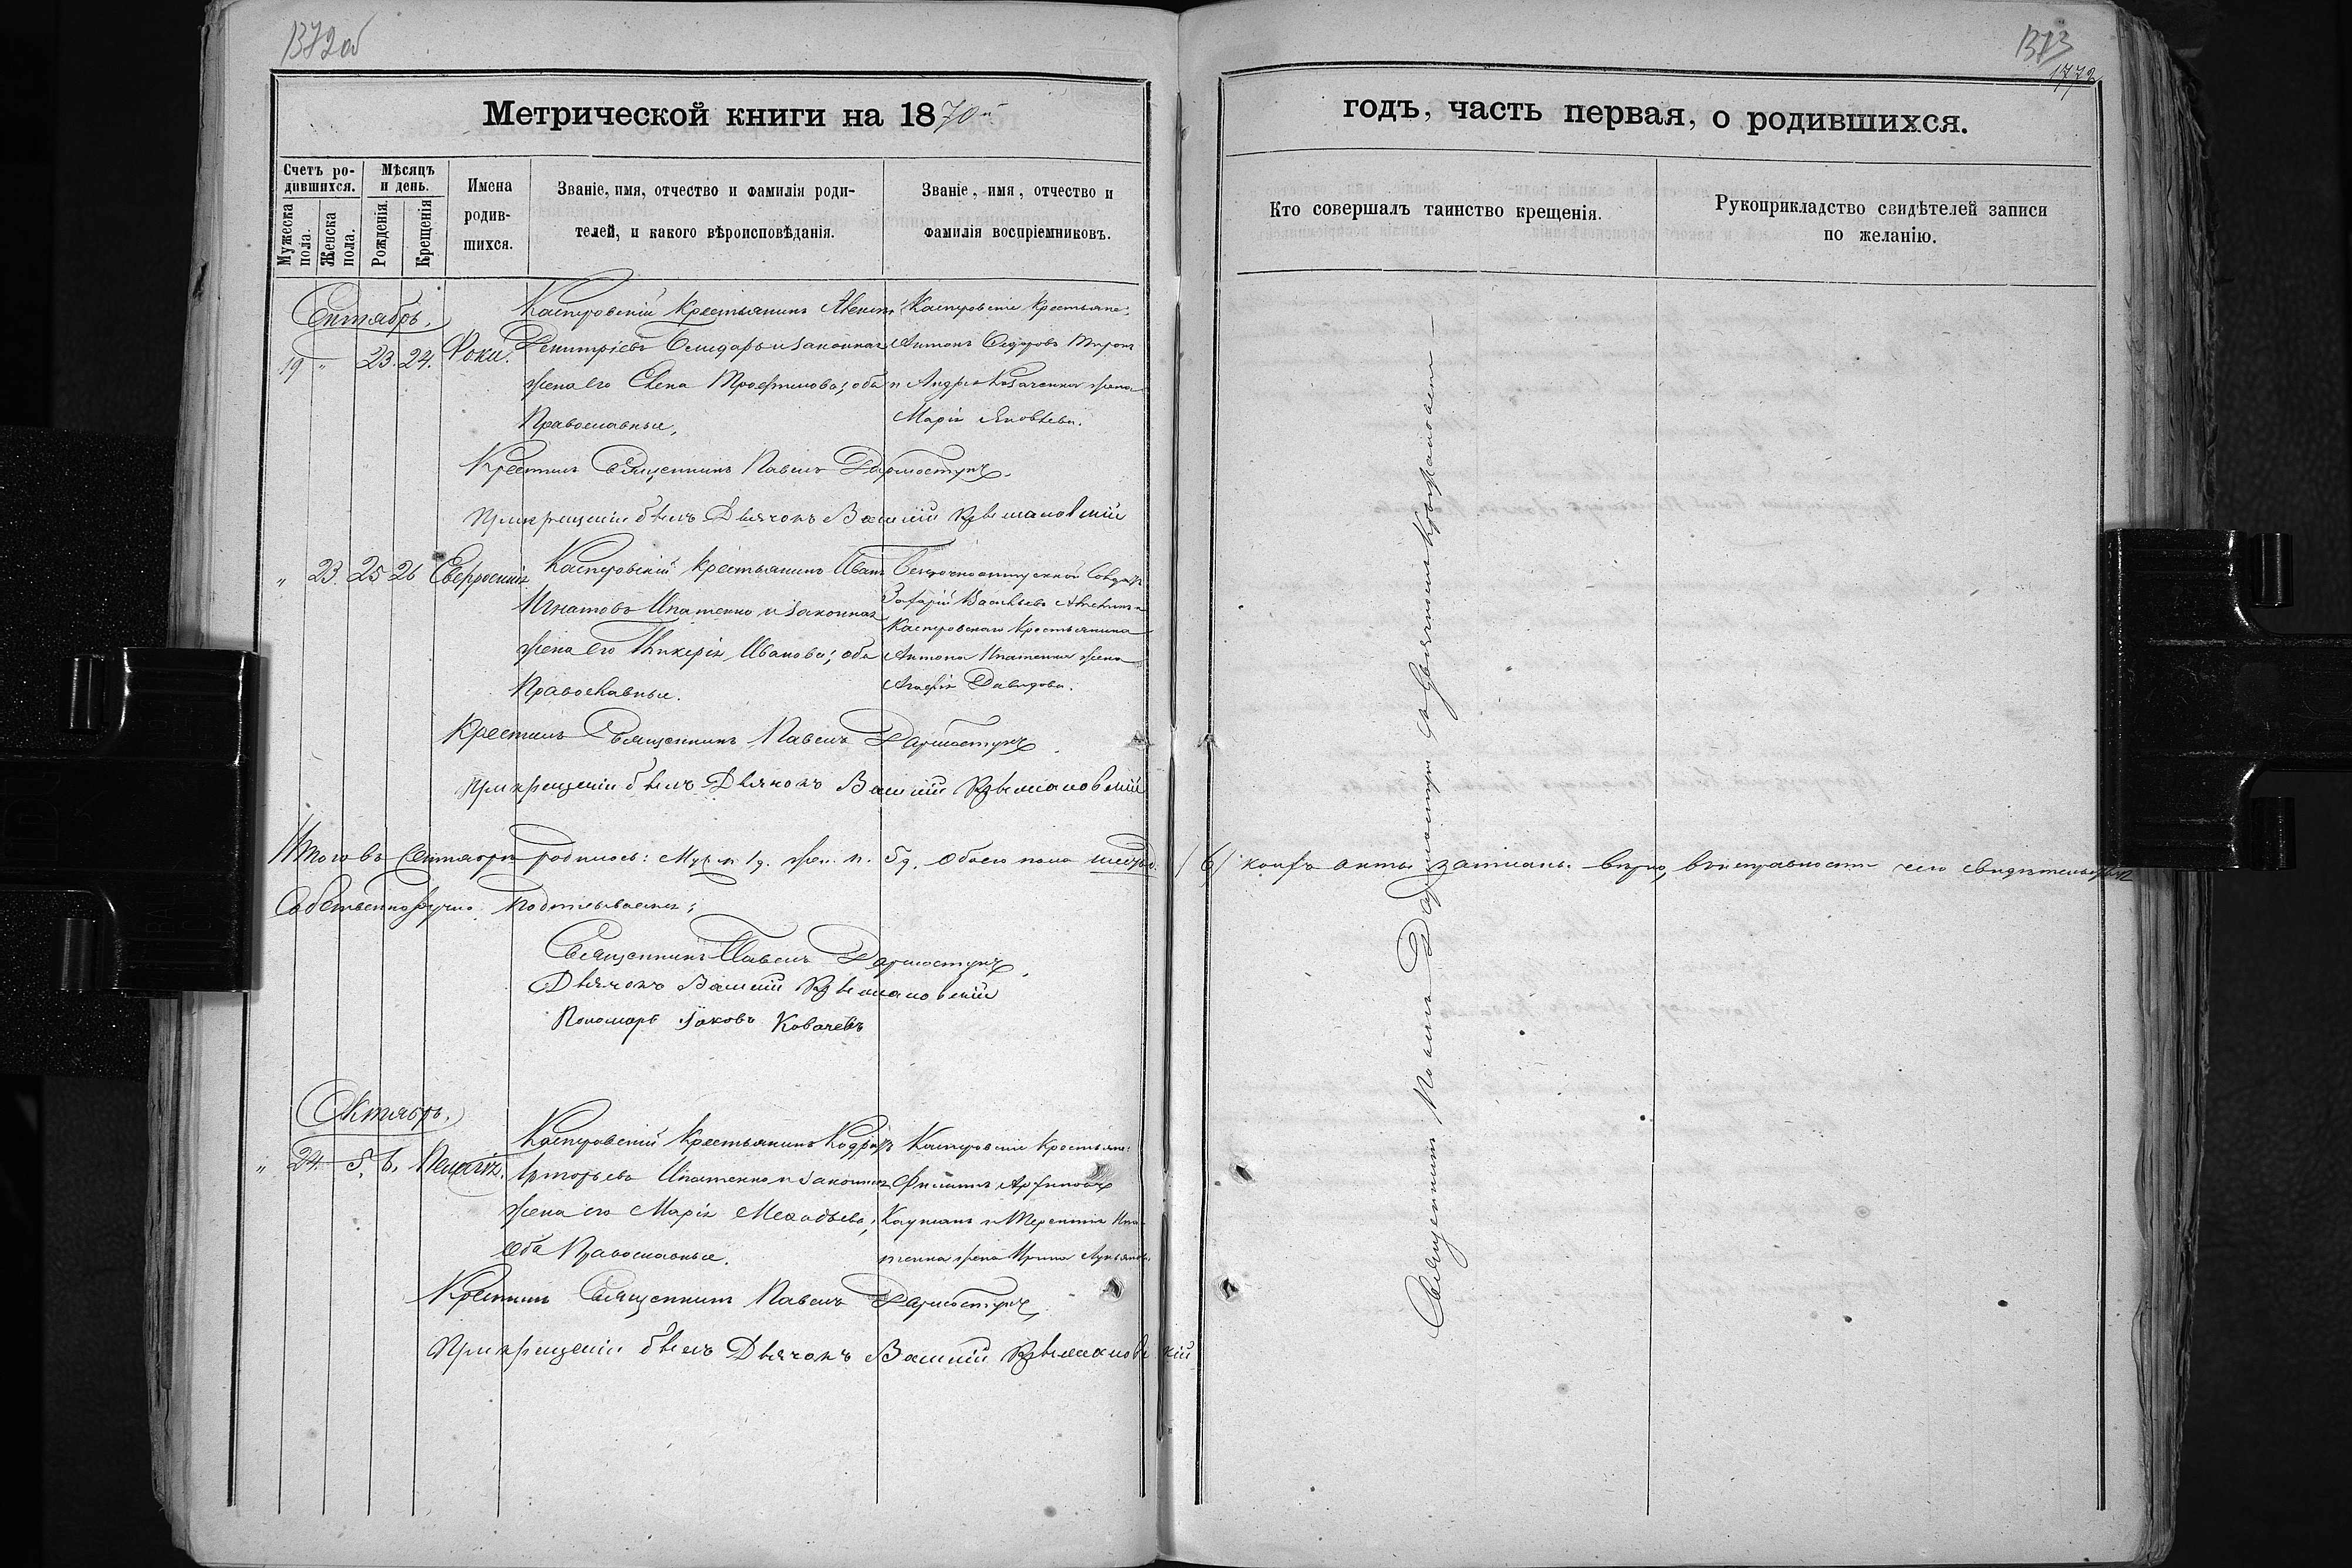 1372об
Метрической книги на 1870й
Счетъ родившихся.
Мужеска пола.
Женска пола.
Мѣсяцъ и день.
Рожденія.
Крещенія
Имена родившихся.
Званіе, имя, отчество и фамилія родителей, и какого вѣроисповѣданія.
Званіе, имя, отчество и фамилія воспріемниковъ.
Сентябрь.
19 " 23. 24. Фока.
Касперовскій Крестьянинъ
Димитріевъ и законная
жена его Елена Трофимова; оба
Православные,
Касперовскіе Крестьяне:
Антонъ Федоровъ
и Андрея Козаченка жена
Марія Яковлева.
Крестилъ Священникъ Павелъ Дармостукъ.
При крещеніи былъ Дьячокъ Василій
" 23. 25 26 Евфросинія
Касперовскій Крестьянинъ Иванъ
Игнатовъ Ипатенко и законная
жена его Гликерія Иванова; оба
Православные.
Безсрочноотпускной Солдатъ
Захарій Васильевъ
Касперовскаго Крестьянина
Антона Ипатенка жена
Агафія Давидова.
Крестилъ Священникъ Павелъ Дармостукъ.
При крещеніи былъ Дьячокъ Василій
Итого въ Сентябрѣ родилось: Муж. п. 1д. жен. п. 5д. Обоего пола шесть д.
Собственноручно подписываемся:
Священникъ Павелъ Дармостукъ,
Дьячокъ Василій
Пономарь Іаковъ Ковачевъ
Октябрь.
" 24. 5. 6. Пелагія.
Касперовскій Крестьянинъ Кодратъ
Григорьевъ Ипатенко и законная
жена его Марія Мефодьева;
оба Православные.
Касперовскіе Крестьяне:
Филиппъ
и Терентія Ипа-
тенка жена Ирина Лукьянова
Крестилъ Священникъ Павелъ Дармостукъ,
При крещеніи былъ Дьячокъ Василій
1373
1772
годъ, часть первая, о родившихся.
Кто совершалъ таинство крещенія.
Рукоприкладство свидѣтелей записи по желанію.
/6/ коихъ акты записаны вѣрно, въ исправности чего свидѣтельствуемъ
Священникъ Павелъ Дармостукъ съ Дьячкомъ